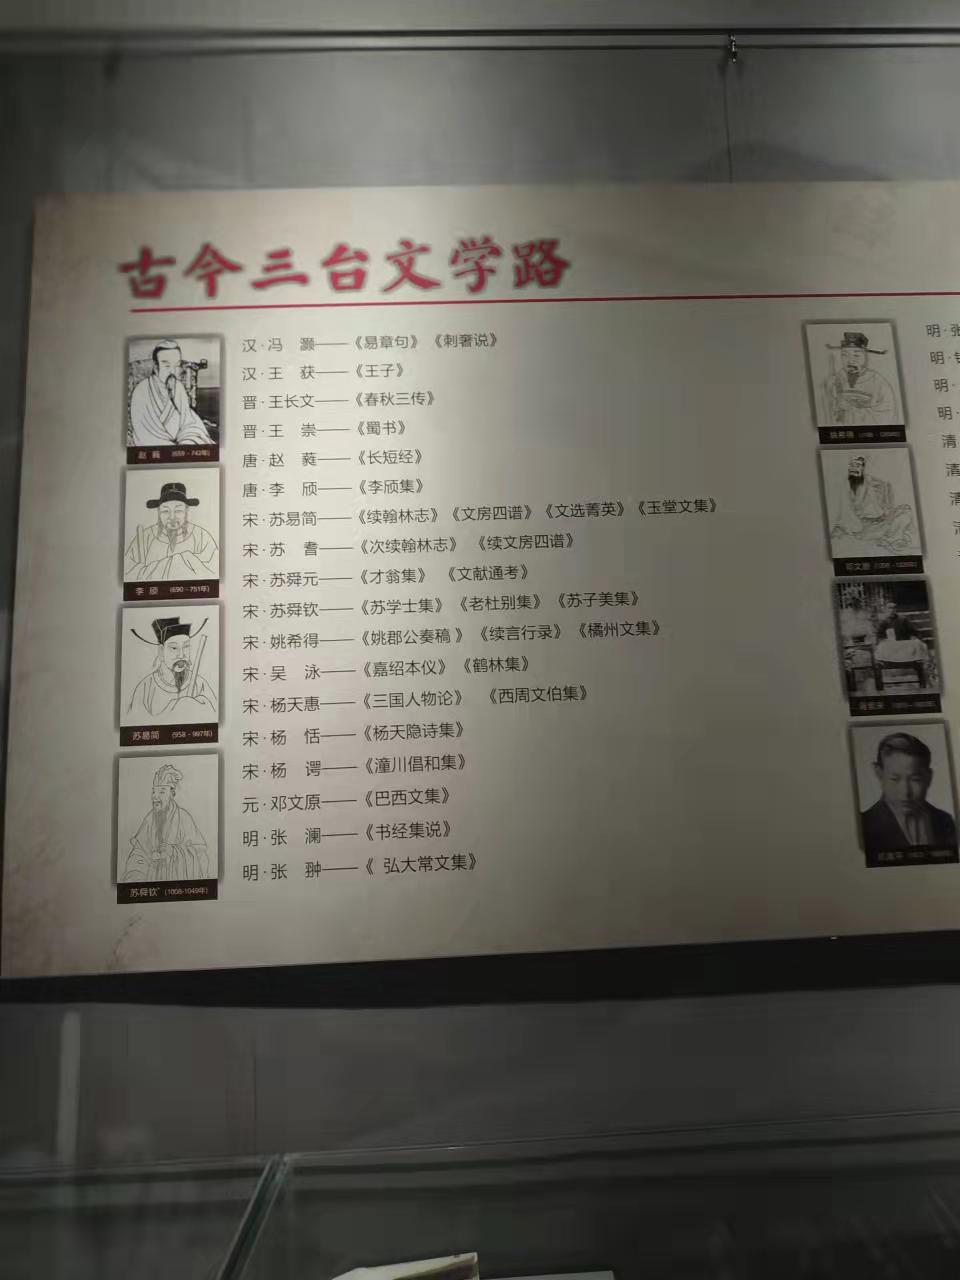 古今三台文学路
汉·冯　灏——《易章句》《刺奢说》
汉·王　获——《王子》
晋·王长文——《春秋三传》
晋·王　崇——《蜀书》
唐·赵　蕤——《长短经》
唐·李　颀——《李颀集》
宋·苏易简——《续翰林志》《文房四谱》《文选菁英》《玉堂文集》
宋·苏　耆——《次续翰林志》《续文房四谱》
宋·苏舜元——《才翁集》《文献通考》
宋·苏舜钦——《苏学士集》《老杜别集》《苏子美集》
宋·姚希得——《姚郡公奏稿 》《续言行录》《橘州文集》
宋·吴　泳——《嘉绍本仪》《鹤林集》
宋·杨天惠——《三国人物论》《西周文伯集》
宋·杨　恬——《杨天隐诗集》
宋·杨　谔——《潼川倡和集》
元·邓文原——《巴西文集》
明·张　澜——《书经集说》
明·张　翀——《 弘大常文集》
赵 蕤 (659 - 742年)
李 颀 (690 - 751年)
苏易简 (958 - 997年)
苏舜钦 (1008-1049年)
明·张
明·
明·
明·
清
清
清